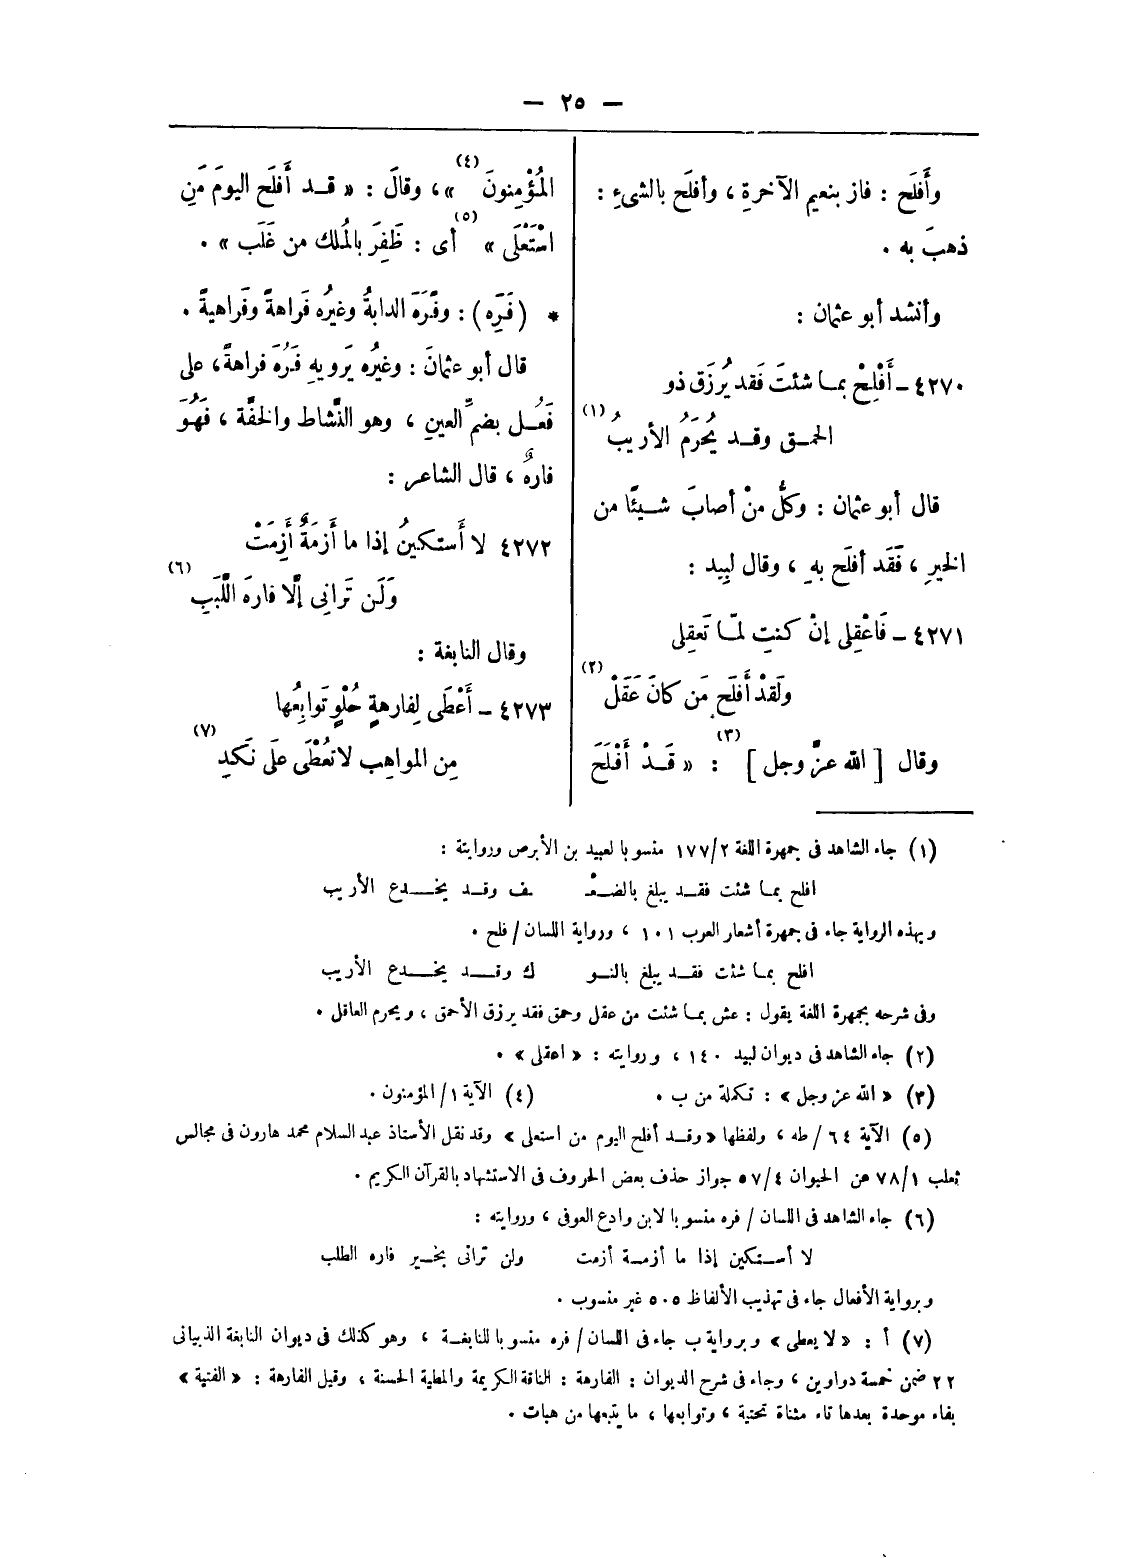 — ٢٥ —
وأَفلَح : فاز بنعيم الآخرةِ ، وأفلَح بالشىءِ :
ذهبَ به .
وأنشد أبو عثمان :
٤٢٧٠ – أَفْلِحْ بمـا شئتَ فَقد يُرزَق ذو
الحمـق وقـد يُحرَمُ الأريبُ (١)
قال أبو عثمان : وكلُّ منْ أصابَ شـيئًا من
الخيرِ ، فَقَد أفلَح بهِ ، وقال لبِيد :
٤٢٧١ – فَاعْقِلى إنْ كنتِ لمّـا تَعقِلى
ولَقدْ أَفلَح مَن كانَ عَقَلْ (٢)
وقال [ الله عزَّ وجل ] (٣) : « قَـدْ أَفْلَحَ
المُؤْمِنونَ (٤) »، وقالَ : « قـد أَفلَح اليومَ مَنِ
اسْتَعْلَى » (٥) أى : ظَفِرَ بالمُلك من غَلَب » .
* ( فَرِه ) : وفَرَهَ الدابةُ وغيرُه فَراهةً وفَراهيةً .
قال أبو عثمانَ : وغيرُه يَرويهِ فَرُهَ فراهةً، على
فَعُـل بضمِّ العينِ ، وهو النَّشاط والخفَّة ، فَهُوَ
فارهٌ ، قال الشاعر :
٤٢٧٢ لا أَستكينُ إذا ما أَزمَةٌ أَزِمَتْ
وَلَن تَرانِى إلَّا فارهَ اللَّبَبِ (٦)
وقال النابغة :
٤٢٧٣ – أَعْطَى لِفارهةٍ حُلْوٍ تَوابِعُها
مِن المواهِب لا تُعْطَى عَلَى نَكَدِ (٧)
(١) جاء الشاهد فى جمهرة اللغة ٢/١٧٧ منسوبا لعبيد بن الأبرص وروايتة :
افلح بمـا شئت فقـد يبلغ بالضـعْـ ـف وقـد يخـــدع الأريب
وبهذه الرواية جاء فى جمهرة أشعار العرب ١٠١ ، ورواية اللسان / فلح .
افلح بمـا شئت فقـد يبلغ بالنـو ك وقـــد يخـــدع الأريب
وفى شرحه بجمهرة اللغة يقول : عش بمـا شئت من عقل وحمق فقد يرزق الأحمق ، ويحرم العاقل .
(٢) جاء الشاهد فى ديوان لبيد ١٤٠ ، وروايته : « اعقلى » .
(٣) « الله عز وجل » : تكملة من ب . (٤) الآية ١/ المؤمنون .
(٥) الآية ٦٤ / طه ، ولفظها « وقـد أفلح اليوم من استعلى » وقد نقل الأستاذ عبد السلام محمد هارون فى مجالس
ثعلب ٧٨/١ عن الحيوان ٥٧/٤ جواز حذف بعض الحروف فى الاستشهاد بالقرآن الكريم .
(٦) جاء الشاهد فى اللسان / فره منسوبا لابن وادع العوفى ، وروايته :
لا أسـتكين إذا ما أزمـة أزمت ولن ترانى بخـير فاره الطلب
وبرواية الأفعال جاء فى تهذيب الألفاظ ٥٠٥ غير منسوب .
(٧) أ : « لا يعطى » وبرواية ب جاء فى اللسان / فره منسوبا للنابغـة ، وهو كذلك فى ديوان النابغة الذبيانى
٢٢ ضمن خمسة دواوين ، وجاء فى شرح الديوان : الفارهة : الناقة الكريمة والمطية الحسنة ، وقيل الفارهة : « الفتية »
بفاء موحدة بعدها تاء مثناة تحتية ، وتوابعها ، ما يتبعها من هبات .